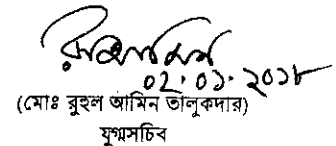 ০২.০১.২০১৮
(মোঃ রুহুল আমিন তালুকদার)
যুগ্মসচিব